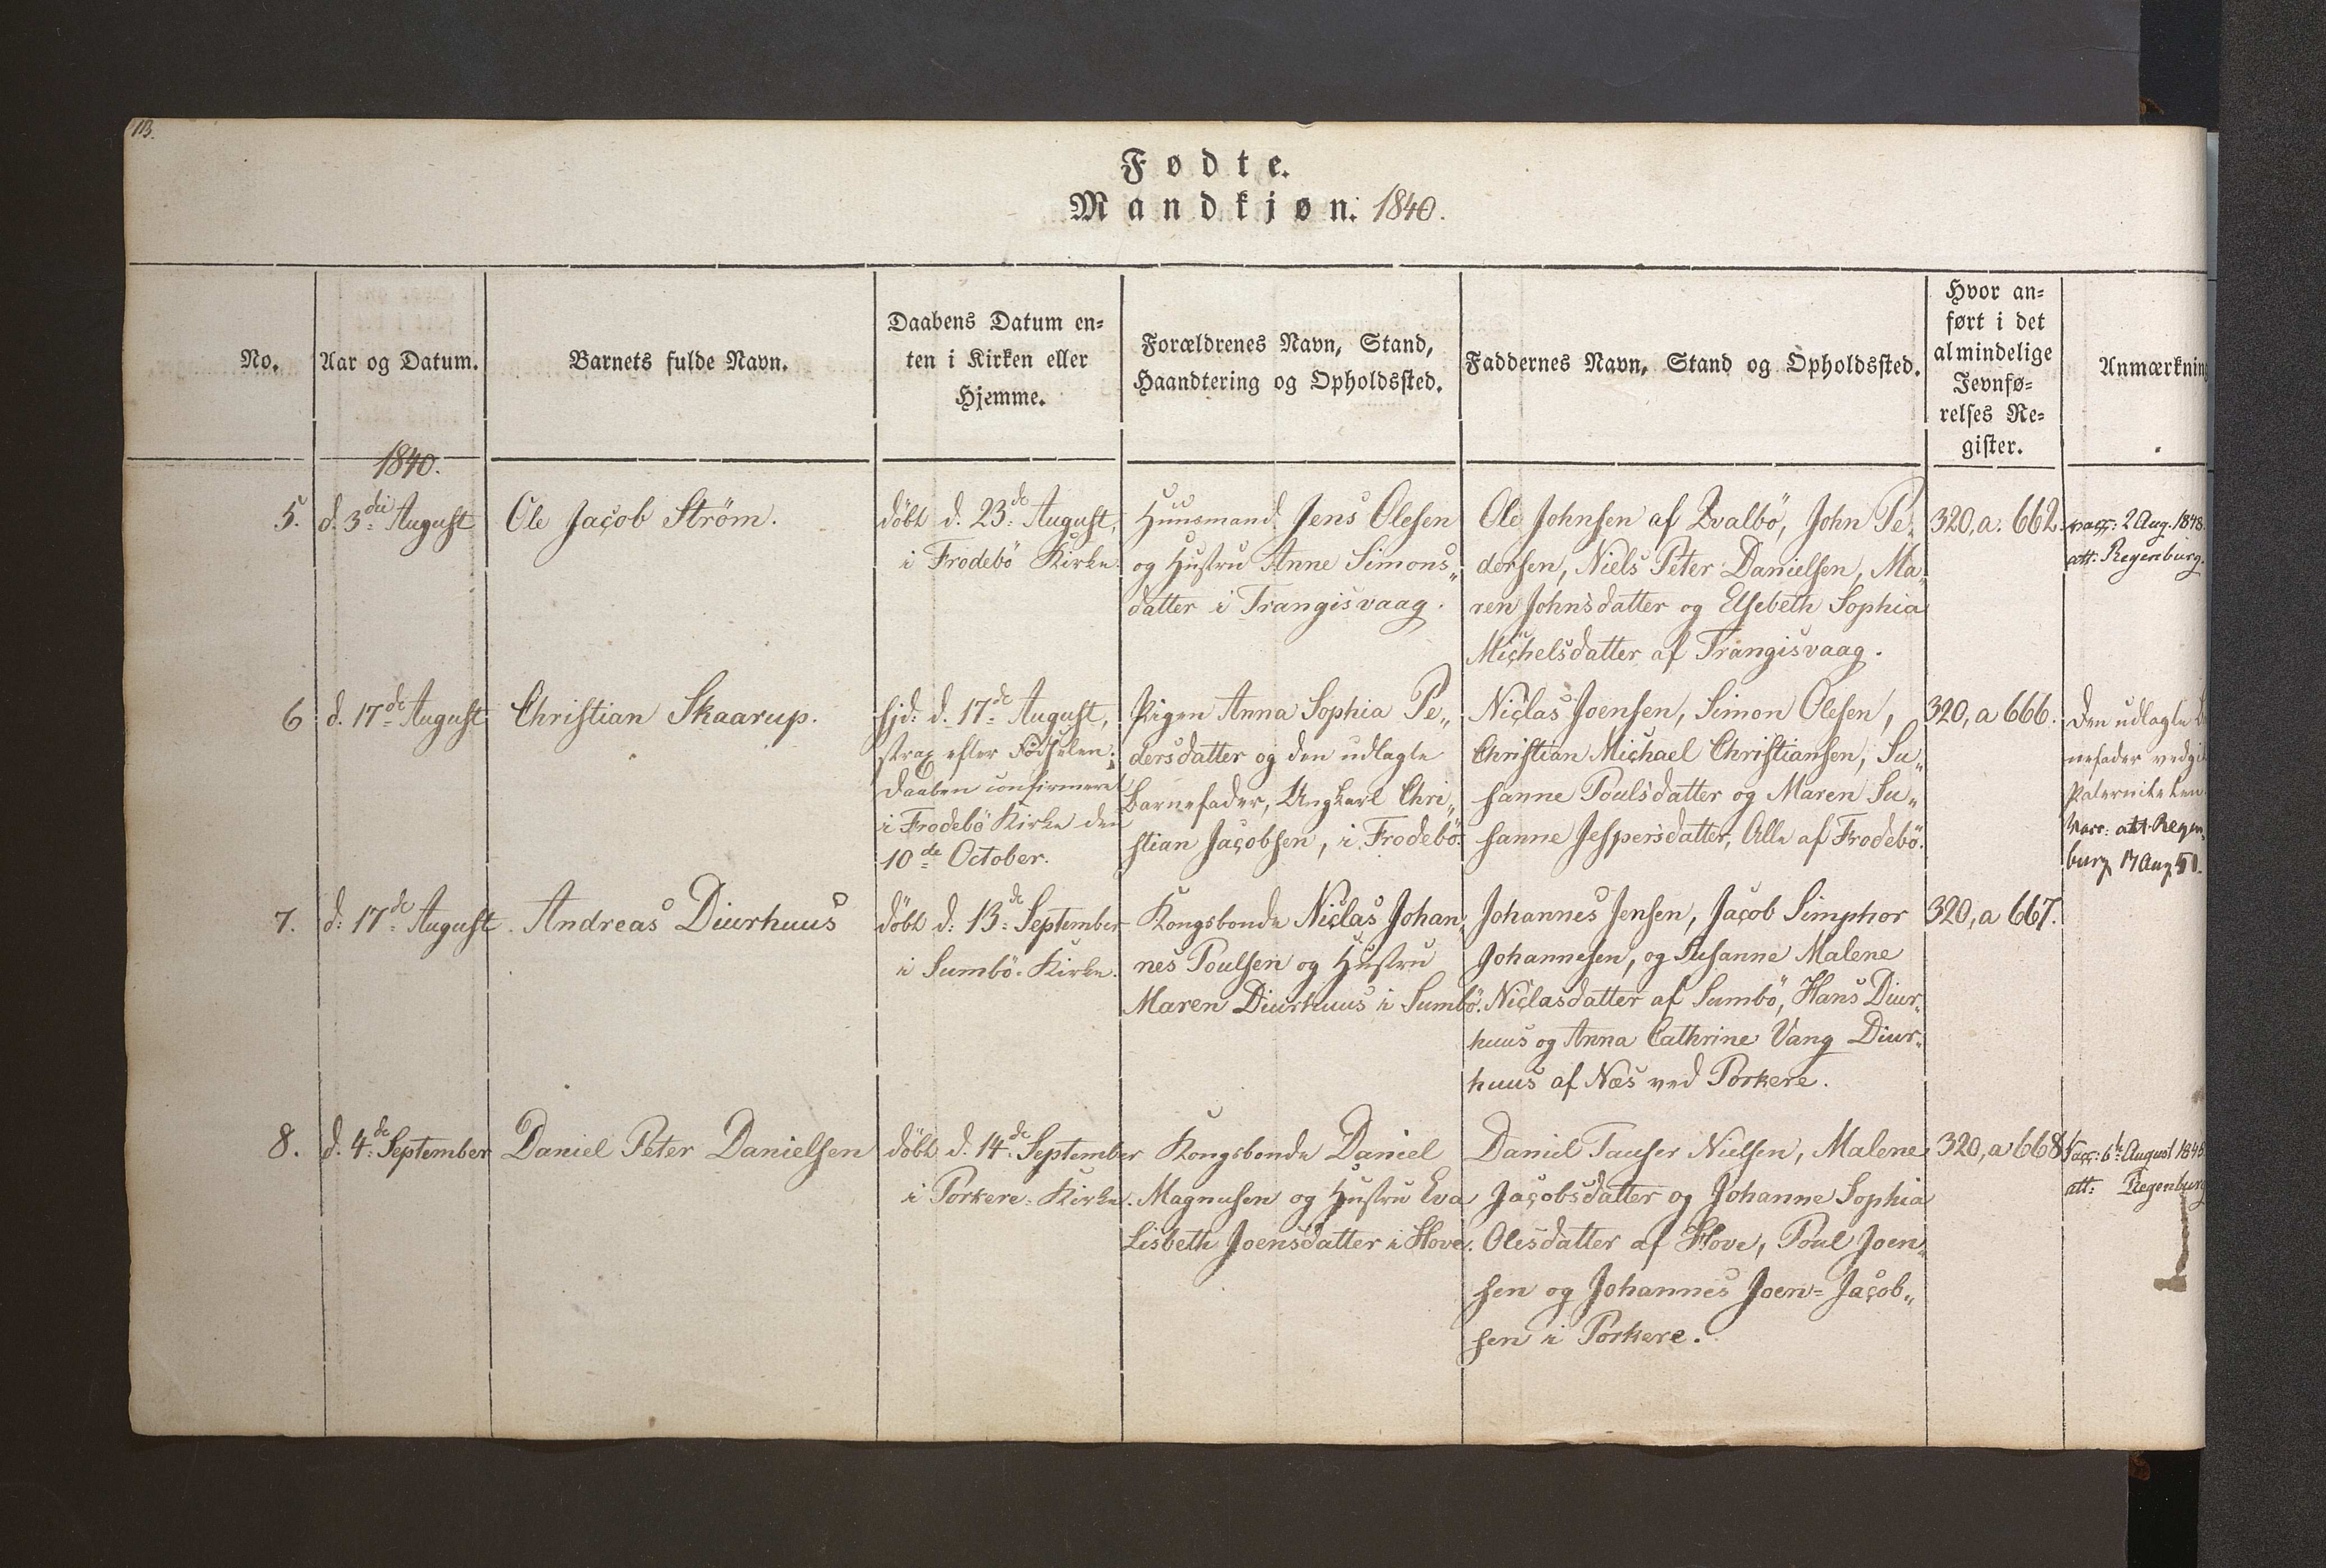 113.
Fødte.
Mandkjøn. 1840.
No.
Aar og Datum.
Barnets fulde Navn.
Daabens Datum en=
ten i Kirken eller
Hjemme.
Forældrenes Navn, Stand,
Haandtering og Opholdssted.
Faddernes Navn, Stand og Opholdssted.
Hvor an=
ført i det
almindelige
Jevnfø=
relses Re=
gister.
Anmærkning
1840.
5.
d. 3die August
Ole Jacob Ström.
döbt d. 23de August,
i Frodebö Kirke.
Huusmand Jens Olesen
og Hustru Anne Simons„
datter i Trangisvaag.
Ole Johnsen af Qvalbö, John Pe„
dersen, Niels Peter Danielsen, Ma„
ren Johnsdatter og Elsebeth Sophia
Michelsdatter af Trangisvaag.
320, a. 662.
vacc: 2 Aug. 1848.
att: Regenburg.
6
d. 17de August
Christian Skaarup.
hjd: d. 17de August,
strax efter Födselen;
Daaben confirmeret
i Frodebö Kirke den
10de October.
Pigen Anna Sophia Pe„
dersdatter og den udlagte
Barnefader, Ungkarl Chri„
stian Jacobsen, i Frodebö.
Niclas Joensen, Simon Olesen,
Christian Michael Christiansen, Su„
sanne Poulsdatter og Maren Su„
sanne Jespersdatter, Alle af Frodebö.
320, a 666.
Den udlagte
nefader vedgi
Paterniteten.
Vacc: att. Regen„
burg
7.
d. 17de August.
Andreas Diurhuus
döbt d. 13de September
i Sumbö-Kirke.
Kongsbonde Niclas Johan„
nes Poulsen og Hustru
Maren Diurhuus i Sumbö.
Johannes Jensen, Jacob Simphor
Johannesen, og Susanne Malene
Niclasdatter af Sumbö, Hans Diur„
huus og Anna Cathrine Vang Diur„
huus af Næs ved Porkere.
320, a 667.
8.
d. 4de September
Daniel Peter Danielsen
döbt d. 14de September
i Porkere-Kirke.
Kongsbonde Daniel
Magnusen og Hustru Eva
Lisbeth Joensdatter i Hove.
Daniel Tauser Nielsen, Malene
Jacobsdatter og Johanne Sophia
Olesdatter af Hove, Poul Joen„
sen og Johannes Joen= Jacob„
sen i Porkere.
320, a 668
Vacc: 6te August 1845
att: Regenburg